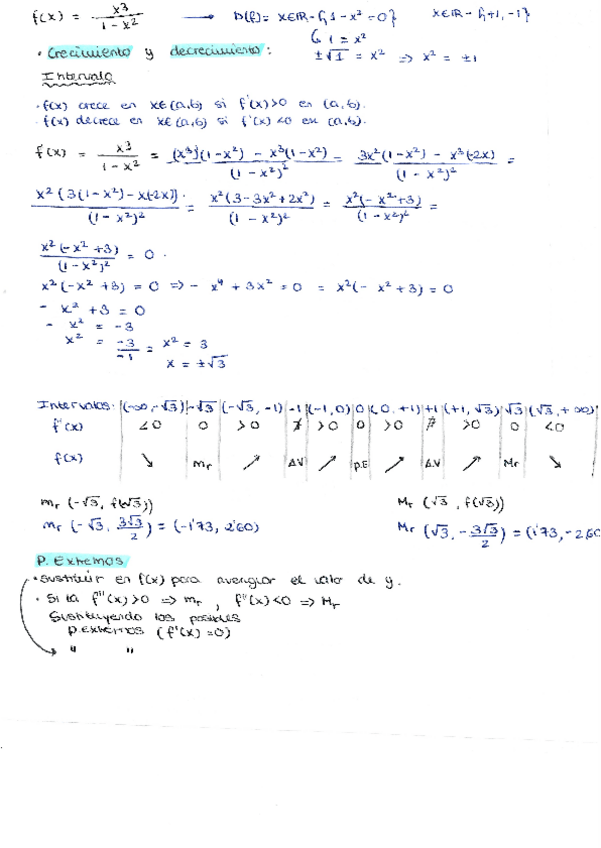 f(x) = x³/(1 - x²) → D(f) = x∈ℝ - {1 - x² = 0} x∈ℝ - {+1, -1}
↳ 1 = x²
• Crecimiento y decrecimiento: ±√1 = x² => x² = ±1
Intervalo
• f(x) crece en x∈(a,b) si f'(x)>0 en (a,b).
• f(x) decrece en x∈(a,b) si f'(x)<0 en (a,b).
f'(x) = x³/(1 - x²) = ((x³)'(1 - x²) - x³(1 - x²)')/(1 - x²)² = (3x²(1 - x²) - x³(-2x))/(1 - x²)² =
x²{3(1 - x²) - x(-2x)}/(1 - x²)² = x²(3 - 3x² + 2x²)/(1 - x²)² = x²(-x² + 3)/(1 - x²)² =
x²(-x² + 3)/(1 - x²)² = 0
x²(-x² + 3) = 0 => - x⁴ + 3x² = 0 = x²(-x² + 3) = 0
- x² + 3 = 0
- x² = -3
x² = -3/-1 = x² = 3
x = ±√3
Intervalos: (-∞, -√3) | -√3 | (-√3, -1) | -1 | (-1, 0) | 0 | (0, +1) | +1 | (+1, √3) | √3 | (√3, +∞)
f'(x) <0 0 >0 ∄ >0 0 >0 ∄ >0 0 <0
f(x) ↘ mr ↗ AV ↗ P.E ↗ A.V ↗ Mr ↘
mr (-√3, f(-√3)) Mr (√3, f(√3))
mr (-√3, 3√3/2) = (-1'73, 2'60) Mr (√3, -3√3/2) = (1'73, -2,60
P. Extremos
• Sustituir en f(x) para averiguar el valor de y.
• Si la f''(x)>0 => mr, f''(x)<0 => Mr
Sustituyendo los posibles
P. Extremos (f'(x) = 0)
" "